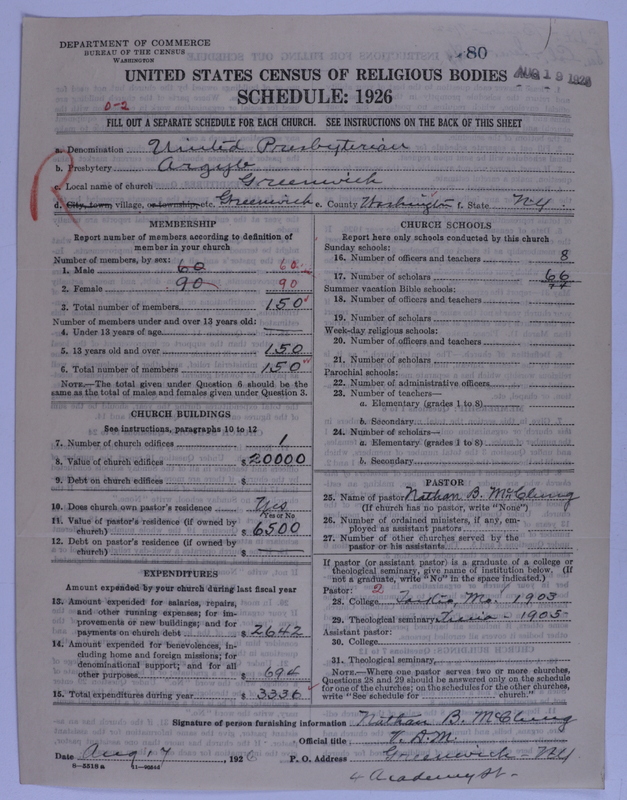 80
DEPARTMENT OF COMMERCE
BUREAU OF THE CENSUS
WASHINGTON
AUG 19 1926
UNITED STATES CENSUS OF RELIGIOUS BODIES
SCHEDULE: 1926
0-2
FILL OUT A SEPARATE SCHEDULE FOR EACH CHURCH. SEE INSTRUCTIONS ON THE BACK OF THIS SHEET
a. Denomination United Presbyterian
b. Presbytery Argyle
c. Local name of church Greenwich
d. City, town, village, or township, etc. Greenwich e. County Washington f. State N.Y.
MEMBERSHIP
Report number of members according to definition of
member in your church
Number of members, by sex:
1. Male 60 60
2. Female 90 90
3. Total number of members 150
Number of members under and over 13 years old:
4. Under 13 years of age
5. 13 years old and over 150
6. Total number of members 150
NOTE.—The total given under Question 6 should be the
same as the total of males and females given under Question 3.
CHURCH BUILDINGS
See instructions, paragraphs 10 to 12
7. Number of church edifices 1
8. Value of church edifices $ 20000
9. Debt on church edifices $
10. Does church own pastor's residence Yes
Yes or No
11. Value of pastor's residence (if owned by
church) $ 6500
12. Debt on pastor's residence (if owned by
church) $
EXPENDITURES
Amount expended by your church during last fiscal year
13. Amount expended for salaries, repairs,
and other running expenses; for im-
provements or new buildings; and for
payments on church debt $ 2642
14. Amount expended for benevolences, in-
cluding home and foreign missions; for
denominational support; and for all
other purposes $ 694
15. Total expenditures during year $ 3336
CHURCH SCHOOLS
Report here only schools conducted by this church
Sunday schools:
16. Number of officers and teachers 8
17. Number of scholars 66
74
Summer vacation Bible schools:
18. Number of officers and teachers
19. Number of scholars
Week-day religious schools:
20. Number of officers and teachers
21. Number of scholars
Parochial schools:
22. Number of administrative officers
23. Number of teachers—
a. Elementary (grades 1 to 8)
b. Secondary
24. Number of scholars—
a. Elementary (grades 1 to 8)
b. Secondary
PASTOR
25. Name of pastor Nathan B. McClung
(If church has no pastor, write "None")
26. Number of ordained ministers, if any, em-
ployed as assistant pastors
27. Number of other churches served by the
pastor or his assistants
If pastor (or assistant pastor) is a graduate of a college or
theological seminary, give name of institution below. (If
not a graduate, write "No" in the space indicated.)
Pastor: 2
28. College Tarkio, Mo. 1903
29. Theological seminary Xenia - 1905
Assistant pastor:
30. College
31. Theological seminary
NOTE.—Where one pastor serves two or more churches,
Questions 28 and 29 should be answered only on the schedule
for one of the churches; on the schedules for the other churches,
write "See schedule for church."
Signature of person furnishing information Nathan B. McClung
Official title V.D.M.
Date Aug 17, 1926 P. O. Address Greenwich - N.Y.
8-5518 a
4 Academy St.